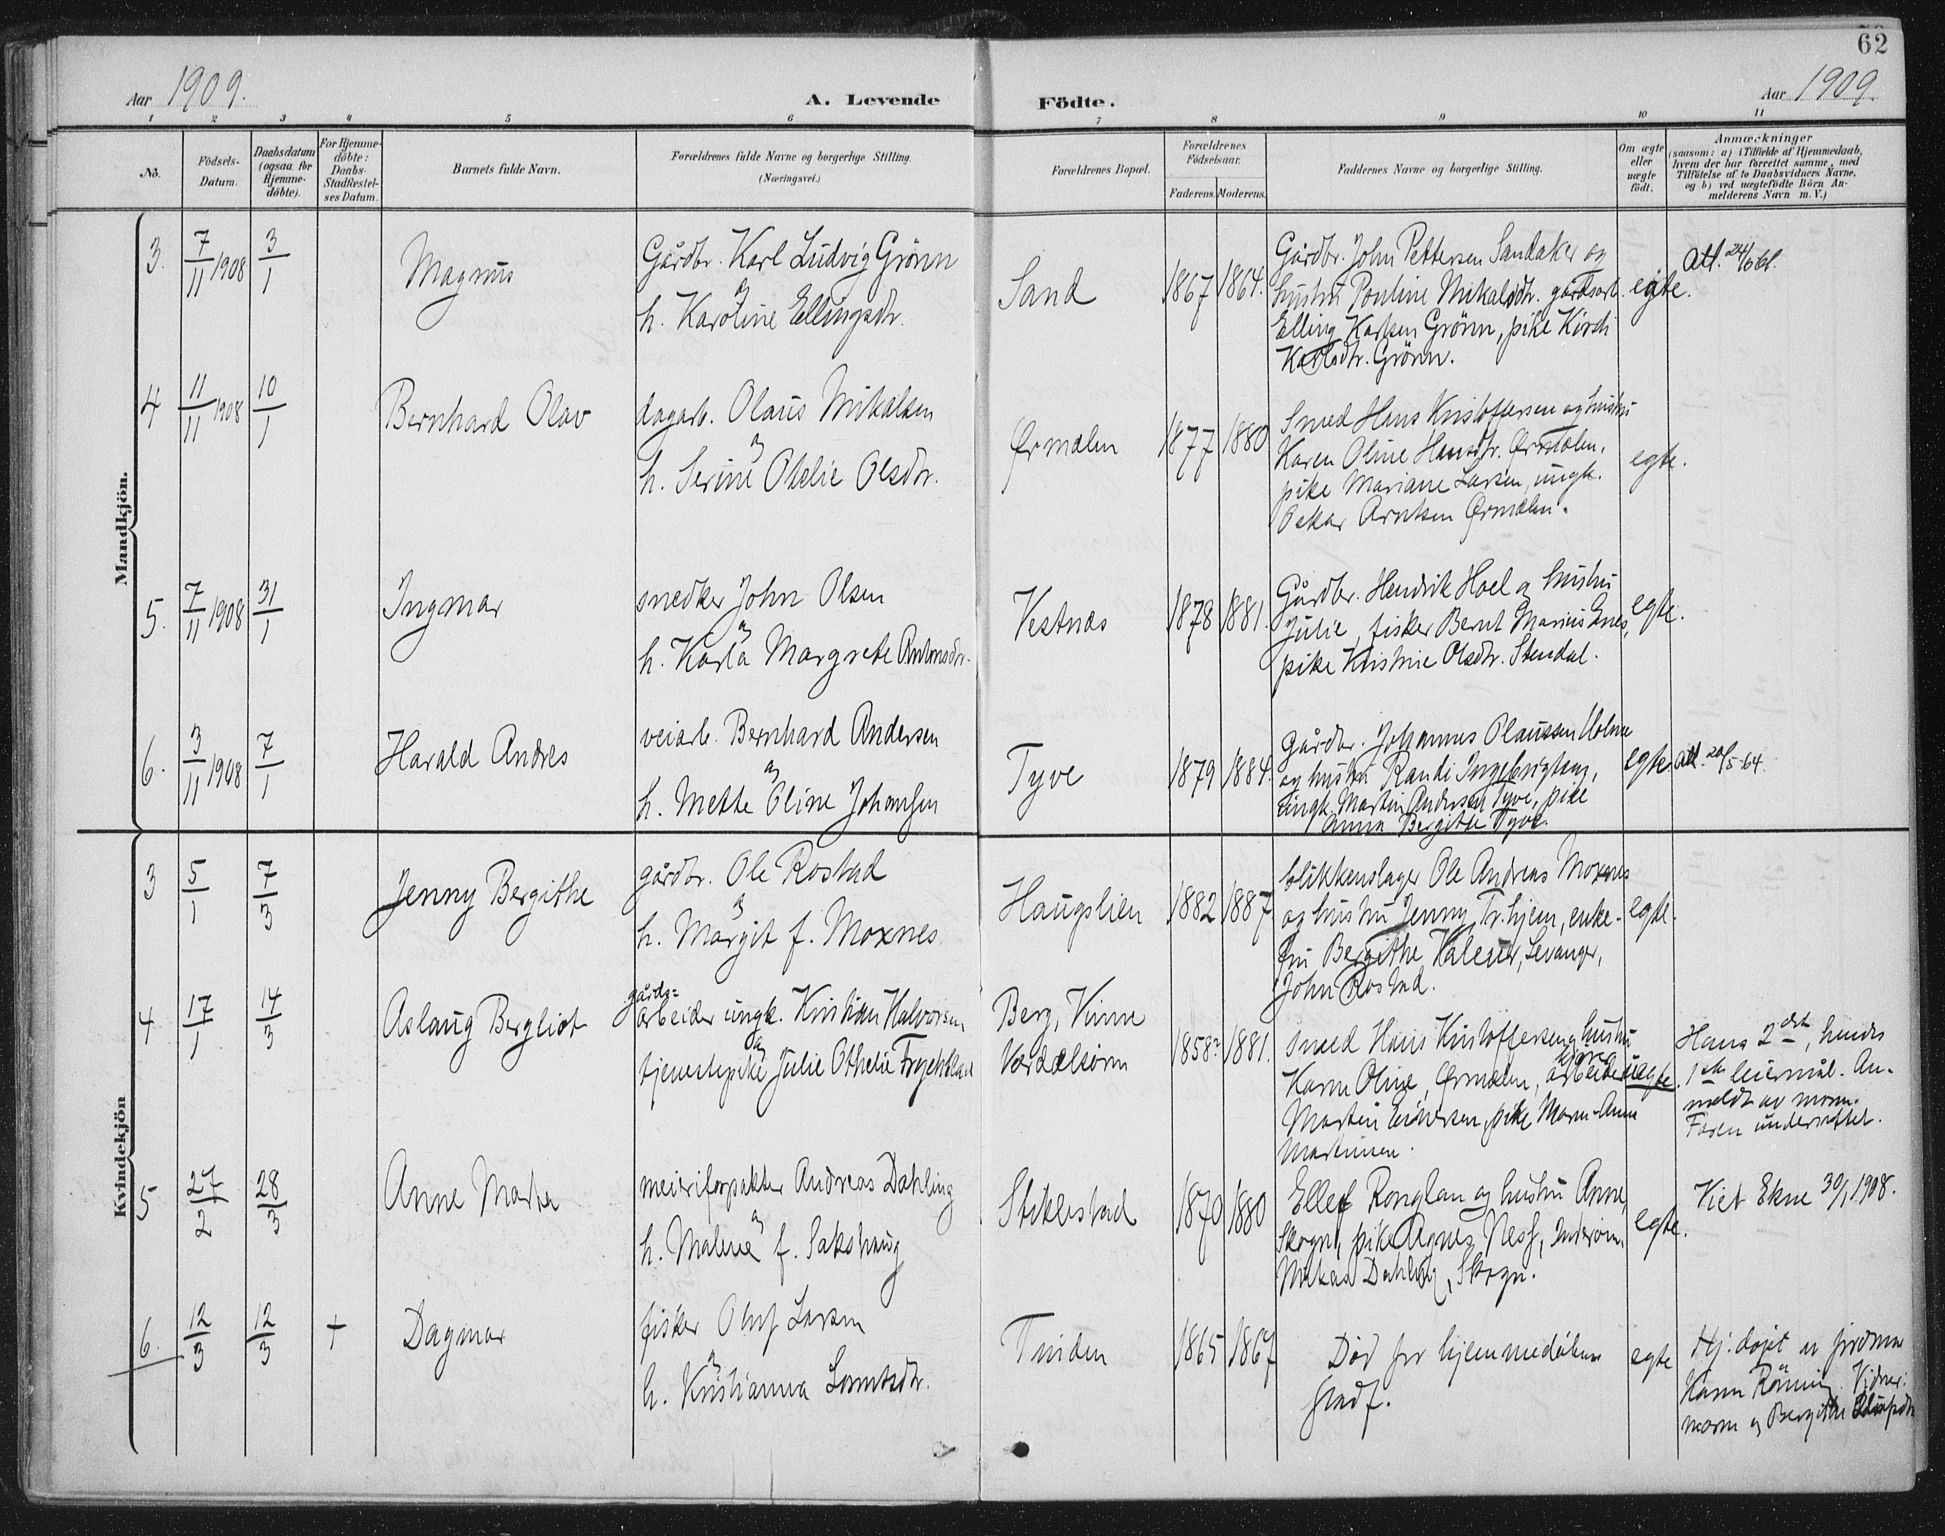 62
Aar 1909.
A. Levende Födte.
Aar 1909.
1 2 3 4 5 6 7 8 9 10 11
No.
Födsels-
Datum.
Daabsdatum
(ogsaa for
Hjemme-
döbte).
For Hjemme-
döbte:
Daabs-
Stadfæstel-
ses Datum.
Barnets fulde Navn.
Forældrenes fulde Navne og borgerlige Stilling.
(Næringsvei.)
Forældrenes Bopæl.
Forældrenes
Födselsaar.
Faderens. Moderens.
Faddernes Navne og borgerlige Stilling.
Om ægte
eller
uægte
født.
Anmærkninger
(saasom: a) i Tilfælde af Hjemmedaab,
hvem der har forrettet samme, med
Tilföielse af to Daabsvidners Navne,
og b) ved uægtefödte Börn An-
melderens Navn m. V.)
Mandkjön.
3. 7/11 1908 3/1 Magnus
Gårdbr. Karl Ludvig Grönn
og
h. Karoline Ellingsdtr.
Sand 1867 1864.
Gårdbr. John Pettersen Sandaker og
hustru Pauline Mikalsdtr. gårdsarb.
Elling Karlsen Grönn, pike Kirsti
Karlsdtr. Grönn.
egte.
Att. 24/6 61.
4 11/11 1908 10/1 Bernhard Olav
dagarb. Olaus Mikalsen
og
h. Serine Otelie Olsdtr.
Ørmelen 1877 1880
Smed Hans Kristoffersen og hustru
Karen Oline Hansdtr. Ørmelen,
pike Mariane Larsen, ungk.
Oskar Arntsen Ørmelen.
egte.
5. 7/11 1908 31/1 Ingmar
snedker John Olsen
og
h. Karla Margrete Antonsdtr.
Vestnæs 1878 1881.
Gårdbr. Hendrik Hoel og hustru
Julie, fisker Bernt Marius
pike Kristine Olsdtr. Stendal.
egte.
6. 3/11 1908 7/1 Harald Andres
veiarb. Bernhard Andersen
og
h. Mette Oline Johansen
Tyve 1879 1884.
Gårdbr. Johannes Olaussen Holme
og hustru Randi Ingebrigtsen,
ungk. Martin Andersen Tyve, pike
Anna Bergitte Tyve.
egte
Att. 20/5-64.
Kvindekjön
3 5/1 7/3 Jenny Bergithe
gårdbr. Ole Rostad
og
h. Margit f. Moxnes.
Haugslien 1882 1887
blikkenslager Ole Andreas Moxnes
og hustru Jenny, Tr.hjem, enke-
fru Bergithe Levanger,
John Rostad.
egte.
4. 17/1 14/3 Aslaug Bergliot
gårds-
arbeider ungk. Kristian Halvorsen
og
tjenestepike Julie Othelie
Berg, Vinne
Værdalsøren 1858? 1881.
smed Hans Kristoffersen og hustru
Karen Oline, Ørmelen, arbeider
Martin pike Maren Anna
Martinsen.
uegte.
Hans 2det, hendes
1ste leiermål. An-
meldt av moren.
Faren underrettet.
5 27/2 28/3 Anne Marta
meieriforpakter Andreas Dahling
og
h. Malene f. Sakshaug
Stiklestad 1870 1880
Ellef Ronglan og hustru Anne,
Skogn, pike Agnes Ness, Inderøen,
Dahling, Skogn.
egte.
Viet Ekne 30/1 1908.
6. 12/3 12/3 + Dagmar
fisker Oluf Larsen
og
h. Kristianna Lorntsdtr.
Tinden 1865 1867
Død før hjemmedåben
stadf.
egte
Hj. døpt av jordmor
Karen Rönning. Vidner:
moren og Bergitte